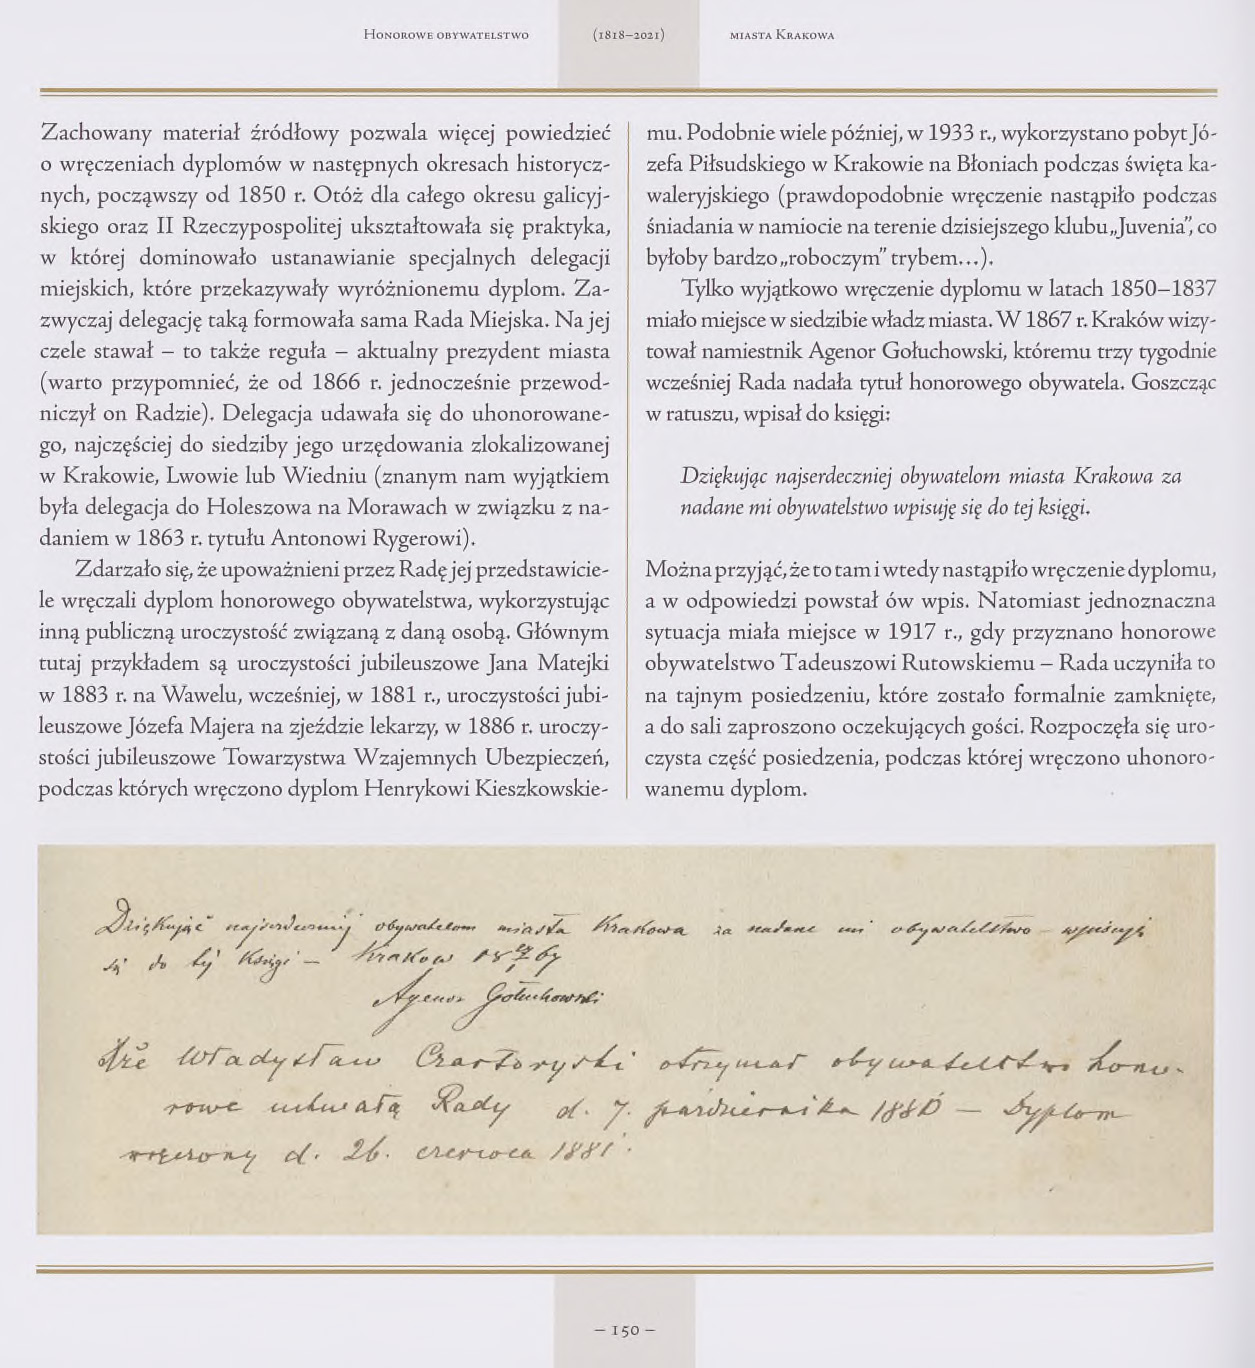 Honorowe obywatelstwo (1818–2021) miasta Krakowa
Zachowany materiał źródłowy pozwala więcej powiedzieć
o wręczeniach dyplomów w następnych okresach historycz-
nych, począwszy od 1850 r. Otóż dla całego okresu galicyj-
skiego oraz II Rzeczypospolitej ukształtowała się praktyka,
w której dominowało ustanawianie specjalnych delegacji
miejskich, które przekazywały wyróżnionemu dyplom. Za-
zwyczaj delegację taką formowała sama Rada Miejska. Na jej
czele stawał – to także reguła – aktualny prezydent miasta
(warto przypomnieć, że od 1866 r. jednocześnie przewod-
niczył on Radzie). Delegacja udawała się do uhonorowane-
go, najczęściej do siedziby jego urzędowania zlokalizowanej
w Krakowie, Lwowie lub Wiedniu (znanym nam wyjątkiem
była delegacja do Holeszowa na Morawach w związku z na-
daniem w 1863 r. tytułu Antonowi Rygerowi).
Zdarzało się, że upoważnieni przez Radę jej przedstawicie-
le wręczali dyplom honorowego obywatelstwa, wykorzystując
inną publiczną uroczystość związaną z daną osobą. Głównym
tutaj przykładem są uroczystości jubileuszowe Jana Matejki
w 1883 r. na Wawelu, wcześniej, w 1881 r., uroczystości jubi-
leuszowe Józefa Majera na zjeździe lekarzy, w 1886 r. uroczy-
stości jubileuszowe Towarzystwa Wzajemnych Ubezpieczeń,
podczas których wręczono dyplom Henrykowi Kieszkowskie-
mu. Podobnie wiele później, w 1933 r., wykorzystano pobyt Jó-
zefa Piłsudskiego w Krakowie na Błoniach podczas święta ka-
waleryjskiego (prawdopodobnie wręczenie nastąpiło podczas
śniadania w namiocie na terenie dzisiejszego klubu „Juvenia”, co
byłoby bardzo „roboczym” trybem...).
Tylko wyjątkowo wręczenie dyplomu w latach 1850–1837
miało miejsce w siedzibie władz miasta. W 1867 r. Kraków wizy-
tował namiestnik Agenor Gołuchowski, któremu trzy tygodnie
wcześniej Rada nadała tytuł honorowego obywatela. Goszcząc
w ratuszu, wpisał do księgi:
Dziękując najserdeczniej obywatelom miasta Krakowa za
nadane mi obywatelstwo wpisuję się do tej księgi.
Można przyjąć, że to tam i wtedy nastąpiło wręczenie dyplomu,
a w odpowiedzi powstał ów wpis. Natomiast jednoznaczna
sytuacja miała miejsce w 1917 r., gdy przyznano honorowe
obywatelstwo Tadeuszowi Rutowskiemu – Rada uczyniła to
na tajnym posiedzeniu, które zostało formalnie zamknięte,
a do sali zaproszono oczekujących gości. Rozpoczęła się uro-
czysta część posiedzenia, podczas której wręczono uhonoro-
wanemu dyplom.
Dziękując najserdeczniej obywatelom miasta Krakowa za nadane mi obywatelstwo wpisuję
się do tej Księgi – Kraków
Agenor Gołuchowski
Xże Władysław Czartoryski otrzymał obywatelstwo hono-
rowe uchwałą Rady d. 7. października 1880 – Dyplom
wręczony d. 26. czerwca 1881.
– 150 –